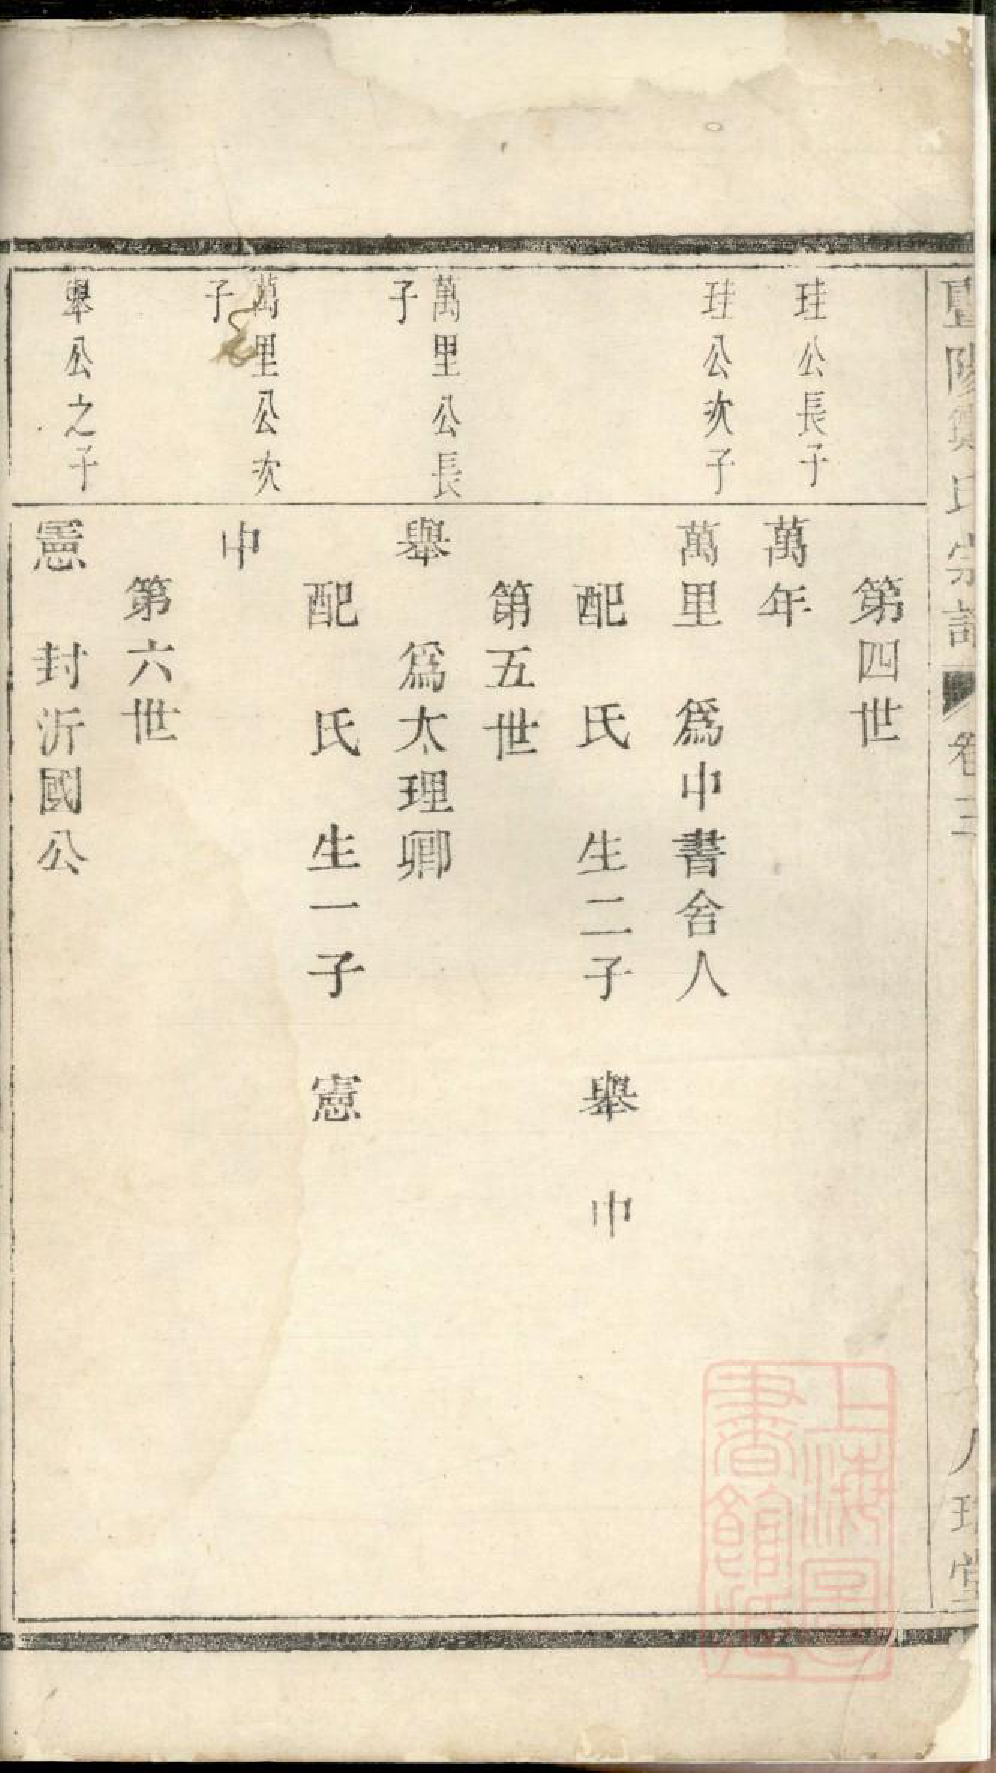 暨陽鄭氏宗譜 卷三
第四世
珪公長子
萬年
珪公次子
萬里 爲中書舍人
配 氏 生二子 舉 中
第五世
萬里公長
子
舉 爲太理卿
配 氏 生一子 憲
萬里公次
子
中
第六世
舉公之子
憲 封沂國公
上海圖
書館藏